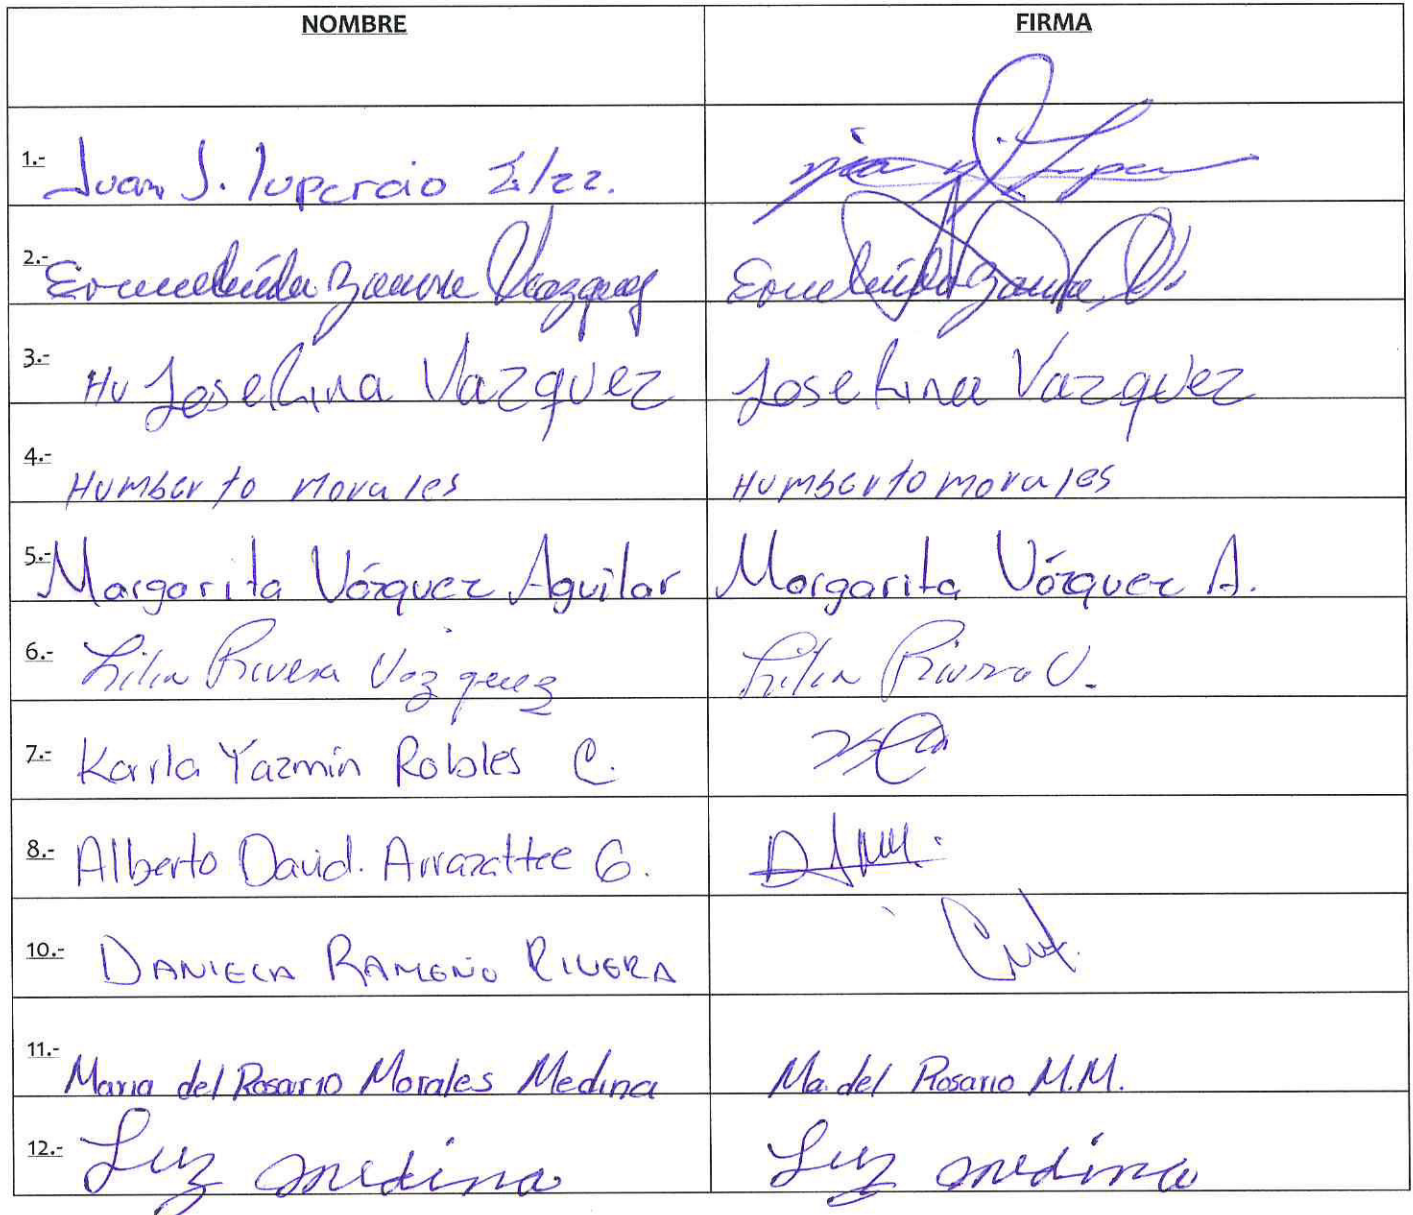 NOMBRE FIRMA
1.- Juan J. Lupercio
2.- Ermelinda Zamora Vazquez Ermelinda Zamora V.
3.- Hu Josefina Vazquez Josefina Vazquez
4.- Humberto Morales Humberto Morales
5.- Margarita Vázquez Aguilar Margarita Vázquez A.
6.- Lilia Rivera Vazquez Lilia Rivera V.
7.- Karla Yazmín Robles C.
8.- Alberto David. G.
10.- DANIELA RIVERA
11.- Maria del Rosario Morales Medina Ma. del Rosario M.M.
12.- Luz medina Luz medina